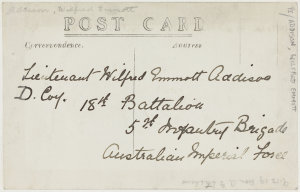 Addison, Wilfred Emmott
POST CARD
Correspondence. Address
Lieutenant Wilfred Emmott Addison
D. Coy. 18th Battalion
5th Infantry Brigade
Australian Imperial Force
ADDISON, WILFRED EMMOTT